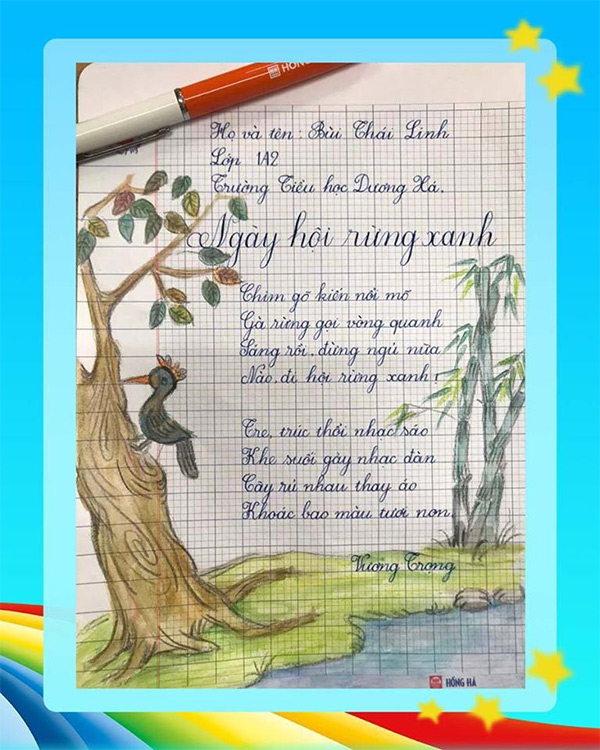 HỒNG HÀ
Họ và tên: Bùi Thái Linh
Lớp 1A2
Trường Tiểu học Dương Hà.
Ngày hội rừng xanh
Chim gõ kiến nổi mõ
Gà rừng gọi vòng quanh
Sáng rồi, đừng ngủ nữa
Nào, đi hội rừng xanh!
Tre, trúc thổi nhạc sáo
Khe suối gảy nhạc đàn
Cây rủ nhau thay áo
Khoác bao màu tươi non.
Vương Trọng
HỒNG HÀ